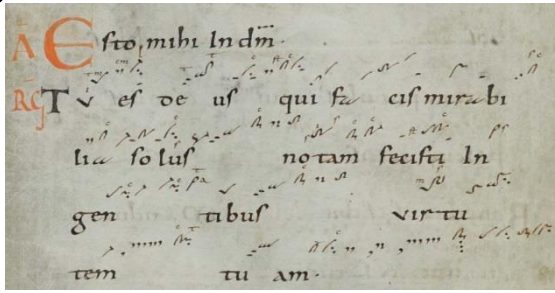 Ā Esto mihi In dm̄.
R̄G Tu es deus qui facis mirabi
lia solus notam fecisti In
gentibus virtu
tem tuam.